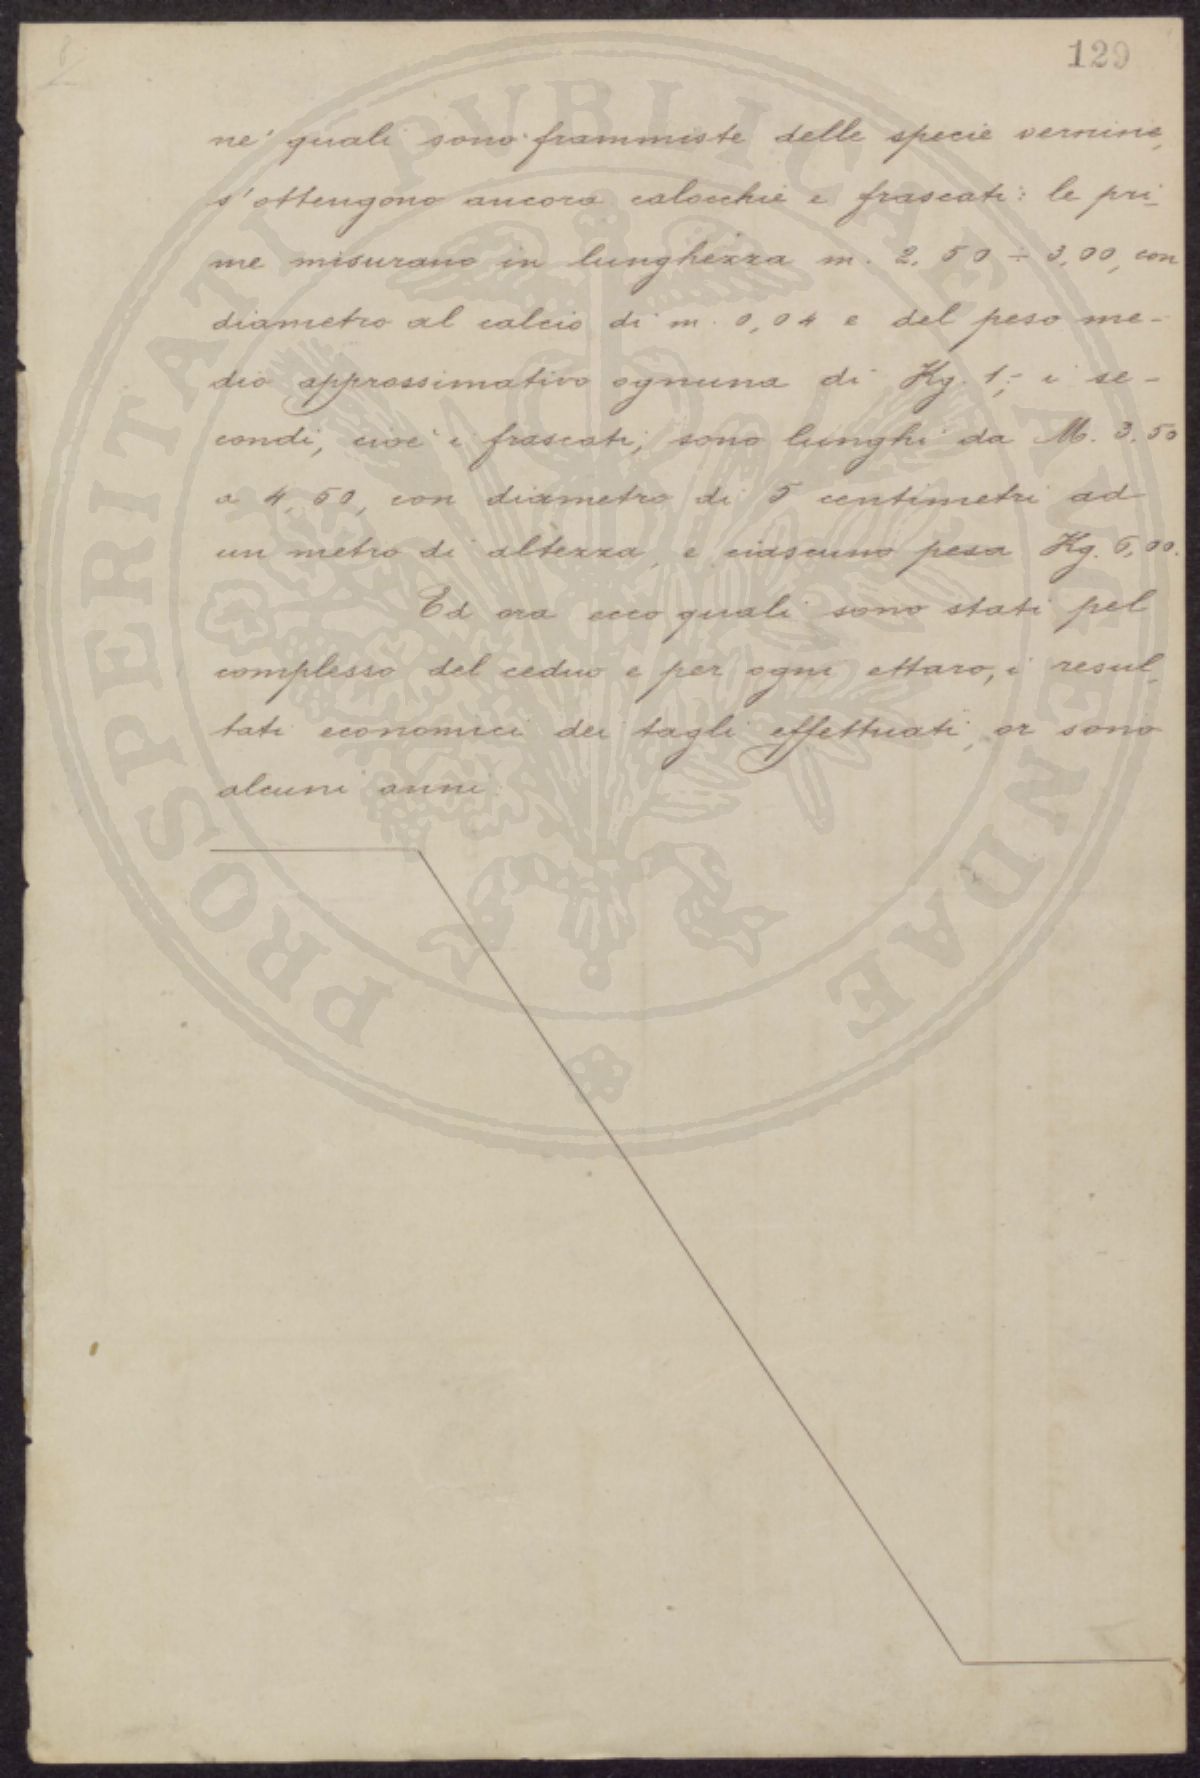 129
ne' quali sono frammiste delle specie vernine,
s'ottengono ancora calocchie e frascati: le pri-
me misurano in lunghezza m. 2,50 ÷ 3,00, con
diametro al calcio di m. 0,04 e del peso me-
dio approssimativo ognuna di Kg. 1,-; i se-
condi, cioè i frascati, sono lunghi da M. 3.50
a 4,50, con diametro di 5 centimetri ad
un metro di altezza, e ciascuno pesa Kg.
Ed ora ecco quali sono stati pel
complesso del ceduo e per ogni ettaro, i resul-
tati economici dei tagli effettuati, or sono
alcuni anni.
PROSPERITATI PVBLICAE AVGENDAE